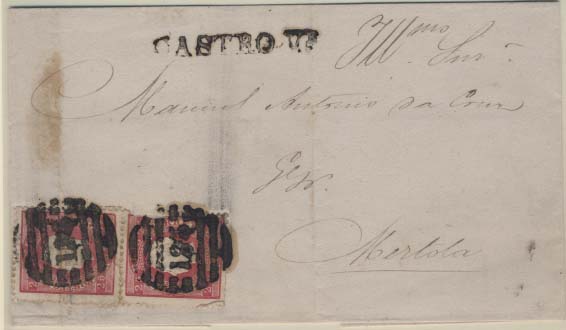 CASTRO Vᴱ
Illmo Snr
Manuel Antonio da Cruz
Mertola